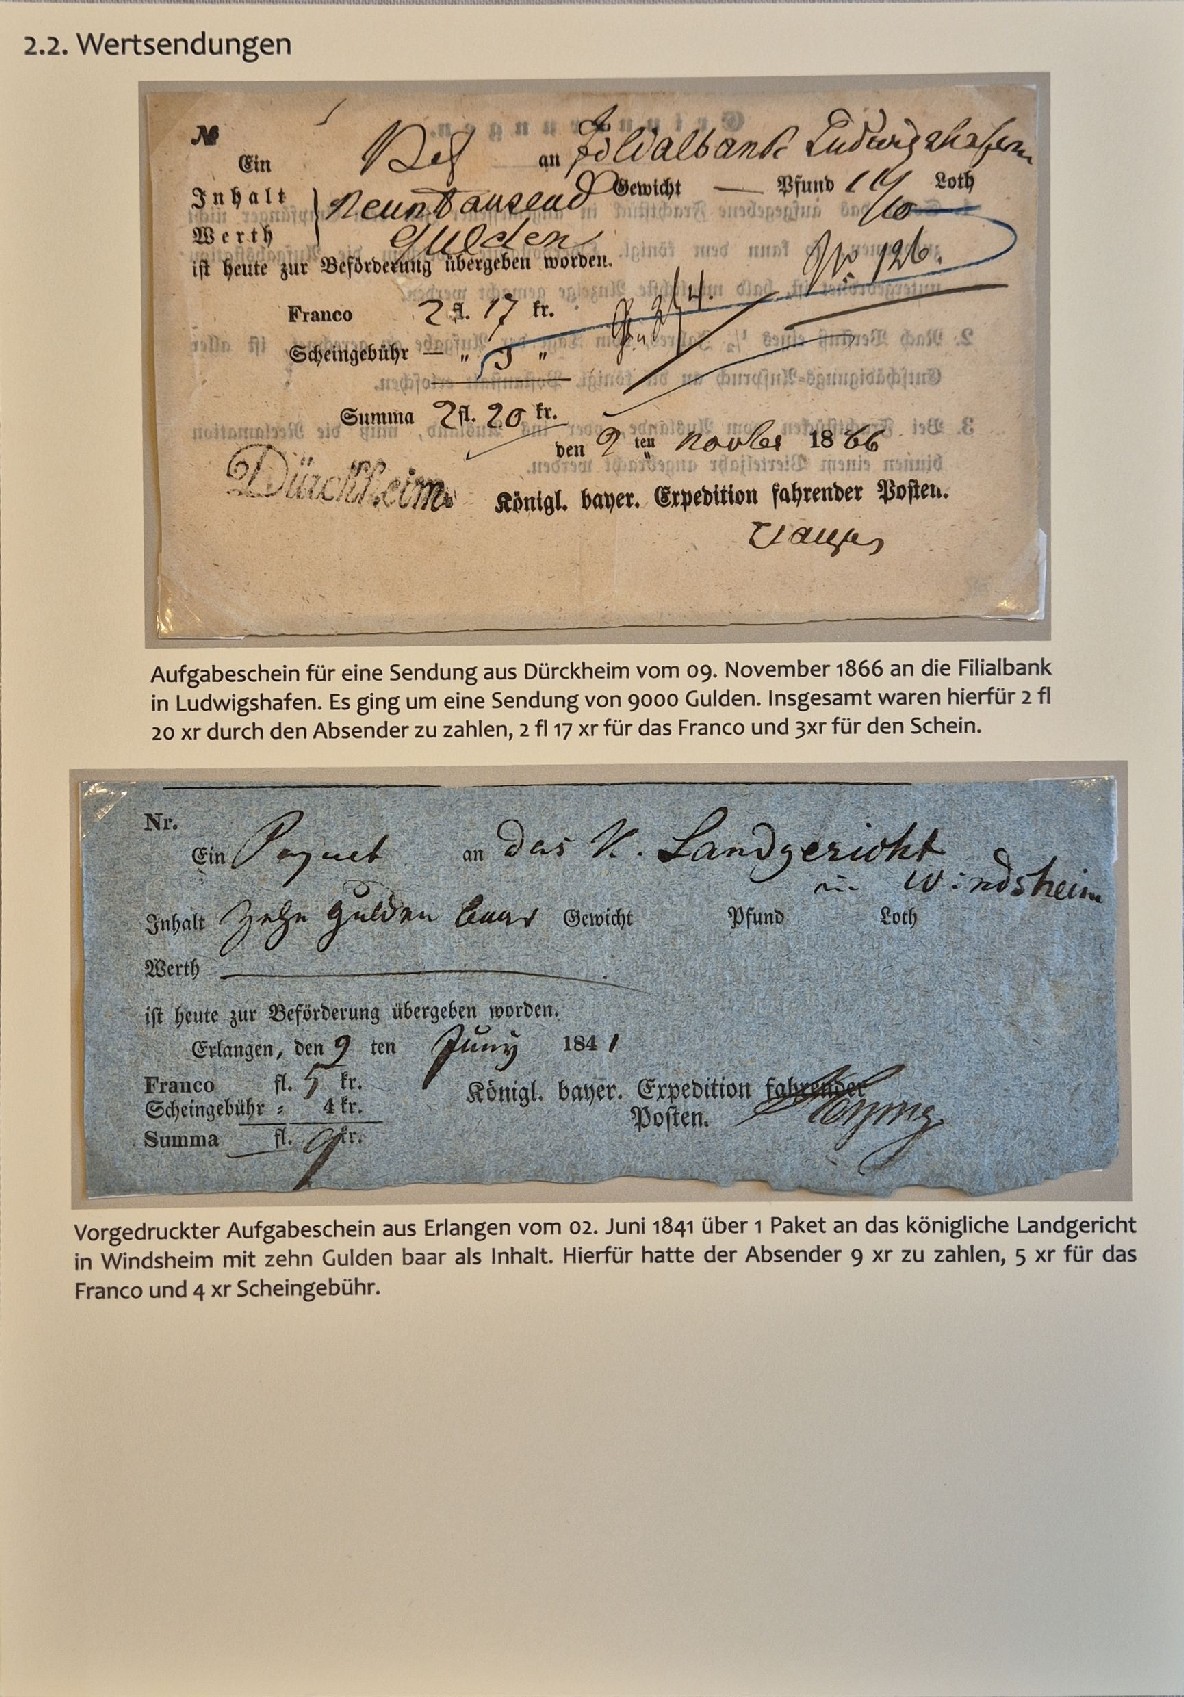 2.2. Wertsendungen
№
Ein an Filialbank Ludwigshafen
Inhalt neuntausend Gewicht — Pfund Loth
Werth Gulden
ist heute zur Beförderung übergeben worden.
No 126.
Franco 2 fl. 17 kr.
Scheingebühr — " 3 "
Summa 2 fl. 20 kr.
den 9 ten Novber 1866
Dürckheim
Königl. bayer. Expedition fahrender Posten.
Aufgabeschein für eine Sendung aus Dürckheim vom 09. November 1866 an die Filialbank
in Ludwigshafen. Es ging um eine Sendung von 9000 Gulden. Insgesamt waren hierfür 2 fl
20 xr durch den Absender zu zahlen, 2 fl 17 xr für das Franco und 3xr für den Schein.
Nr.
Ein Paquet an das K. Landgericht
in Windsheim
Inhalt Zehn Gulden baar Gewicht Pfund Loth
Werth
ist heute zur Beförderung übergeben worden.
Erlangen, den 9 ten Juny 1841
Franco fl. 5 kr.
Scheingebühr = 4 kr.
Summa fl. 9 kr.
Königl. bayer. Expedition fahrender
Posten.
Vorgedruckter Aufgabeschein aus Erlangen vom 02. Juni 1841 über 1 Paket an das königliche Landgericht
in Windsheim mit zehn Gulden baar als Inhalt. Hierfür hatte der Absender 9 xr zu zahlen, 5 xr für das
Franco und 4 xr Scheingebühr.